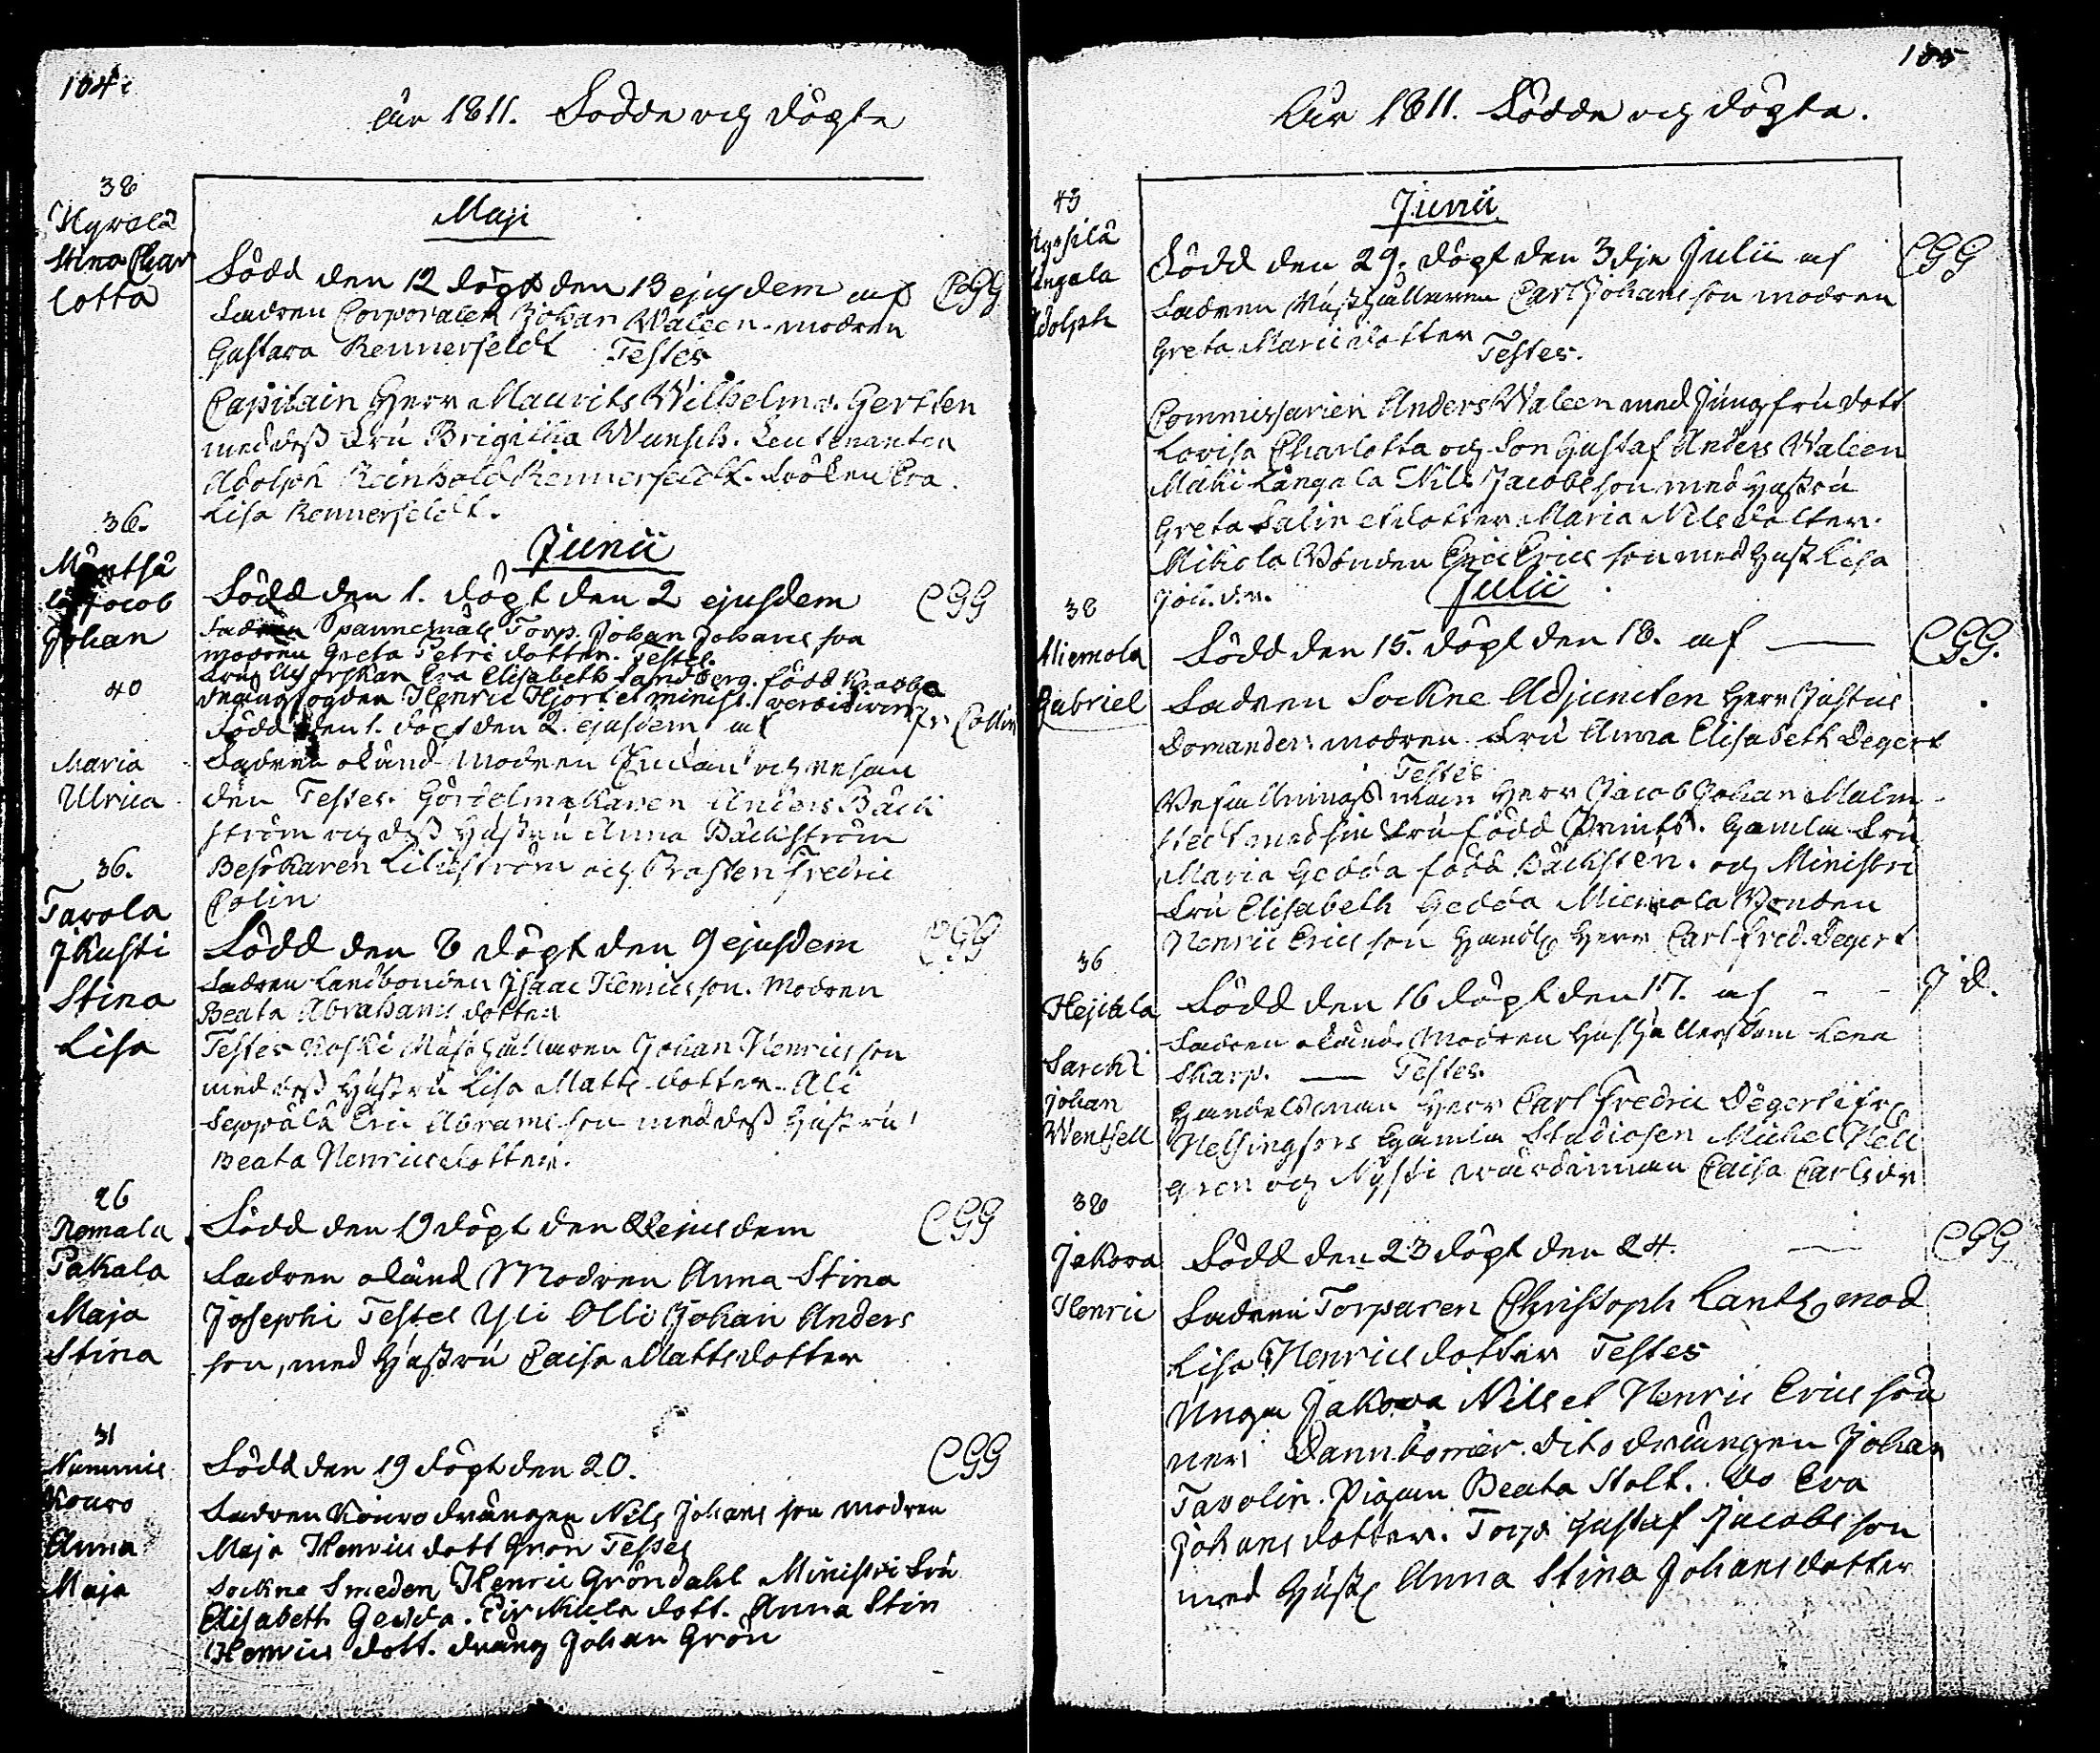 104.
År 1811. Födde och döpte
38
Hyrola
Stina Char
lotta
Maji
Född den 12 döpt den 13 ejusdem af CGG
Fadren Corporalen Johan Waleen. modren
Gustava Rennerfeldt Testes
Capitain Herr Maurits Wilhelm v. Gertten
med dess Fru Brigitha Wunsch. Leutenanten
Adolph Reinhold Rennerfeldt. Fröken Eva
Lisa Rennerfeldt.
36.
Mäntsä
Jacob
Johan
Junii
Född den 1. döpt den 2 ejusdem CGG
Fadren Spannemäls Torp. Johan Johans son
modren Greta Petri dotter. Testes.
Fru Eva Elisabeth Sandberg. född Krabbe
Henric Hjort et minist.
40
Maria
Ulrica
Född den 1. döpt den 2. ejusdem af Fr Collin
Fadren okänd Modren
den Testes. Gördelmakaren Anders Bäck
ström och dess Hustru Anna Bäckström
Besökaren Liliström och Fredric
Colin
36.
Tavola
Jkusti
Stina
Lisa
Född den 8 döpt den 9 ejusdem CGG
Fadren Landbonden Isaac Henrics son. Modren
Beata Abrahams dotter
Testes Koski Måghållaren Johan Henrics son
med dess Hustru Lisa Matts dotter. Ali
Seppälä Eric Abrams son med dess Hustru
Beata Henrics dotter.
26
Komala
Pakala
Maja
Stina
Född den 19 döpt den ejusdem CGG
Fadren okänd Modren Anna Stina
Josephi Testes Yli Olli Johan Anders
son, med Hustru Caisa Mattsdotter
31
Nummis
Kouvo
Anna
Maja
Född den 19 döpt den 20. CGG
Fadren Kouvo drängen Nils Johans son modren
Maja Henrics dott Grön Testes
Sockne Smeden Henric Gröndahl Ministri Fru
Elisabeth Gedda. dott. Anna Stin
Henrics dott. dräng Johan Grön
105
År 1811. Födde och döpte.
43
Längala
Adolph
Junii
Född den 29. döpt den 3dje Julii af CGG
Fadren Carl Johans son modren
Greta Marii dotter Testes.
Commissarien Anders Waleen med Jungfru dott
Lovisa Charlotta och Son Gustaf Anders Waleen
Mäki Längala Nils Jacobs son med Hustru
Greta Salin et dotter Maria Nils dotter.
Mikola Bonden Eric Erics son med Hust Lisa
Joh. dr.
38
Miemola
Gabriel
Julii
Född den 15. döpt den 18. af — CGG.
Fadren Sockne Adjuncten Herr Justus
Domander. modren Fru Anna Elisabeth Degert
Testes
Herr Jacob Johan Malm
sted med sin Fru född Printz. Gamla Fru
Maria Gedda född Bäcksten. och Ministri
Fru Elisabeth Gedda Miemola Bonden
Henric Erics son Handl. Herr Carl Fred. Degert
36
Hejckla
Sarcki
Johan
Wentzell
Född den 16 döpt den 17. af - - J D.
Fadren okänd. Modren Hushållerskan Lena
Skarp. — Testes.
Handelsman Herr Carl Fredric Degert ifr.
Helsingfors Gamla Studiosen Michel Hell
gren och Nysti värdinnan Caisa Carlsdr
38
Jakova
Henric
Född den 23 döpt den 24. — CGG
Fadren Torparen Christoph Lantz. mod
Lisa Henrics dotter Testes
Unga Jakova Nils et Henric Erics sön
ner Dannbomer. dito drängen Johan
Tavolin. Pigan Beata Stolt. Do Eva
Johans dotter. Torp. Gustaf Jacobs son
med Hust. Anna Stina Johans dotter